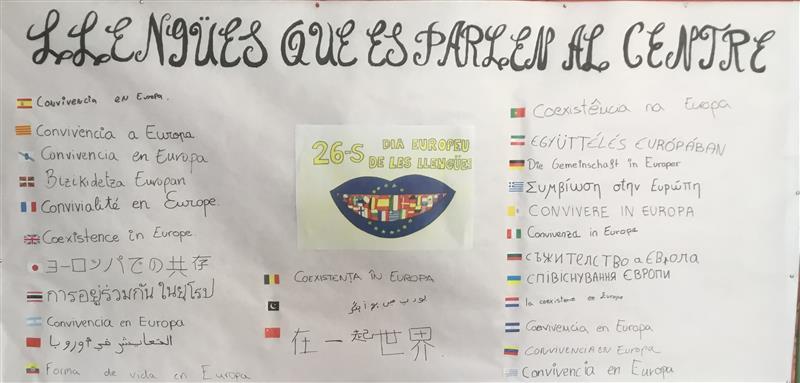 LLENGÜES QUE ES PARLEN AL CENTRE
Convivencia en Europa.
Convivència a Europa
Convivencia en Europa
Bizikidetza Europan
Convivialité en Europe.
Coexistence in Europe.
ヨーロンパでの共存
การอยู่ร่วมกัน ในยุโรป
Convivencia en Europa
التعايش في أوروبا
Forma de vida en Europa
26-S DIA EUROPEU
DE LES LLENGÜES
COEXISTENȚA ÎN EUROPA
在一起世界
Coexistência na Europa
EGYÜTTÉLÉS EURÓPÁBAN
Die Gemeinschaft in Europer
Συμβίωση στην Ευρώπη
CONVIVERE IN EUROPA
Convivenza in Europa
СЪЖИТЕЛСТВО а ЕВРОПА
СПІВІСНУВАННЯ ЄВРОПИ
la coexistence en Europa
Convivencia en Europa
CONVIVENCIA EN EUROPA
Convivencia en Europa